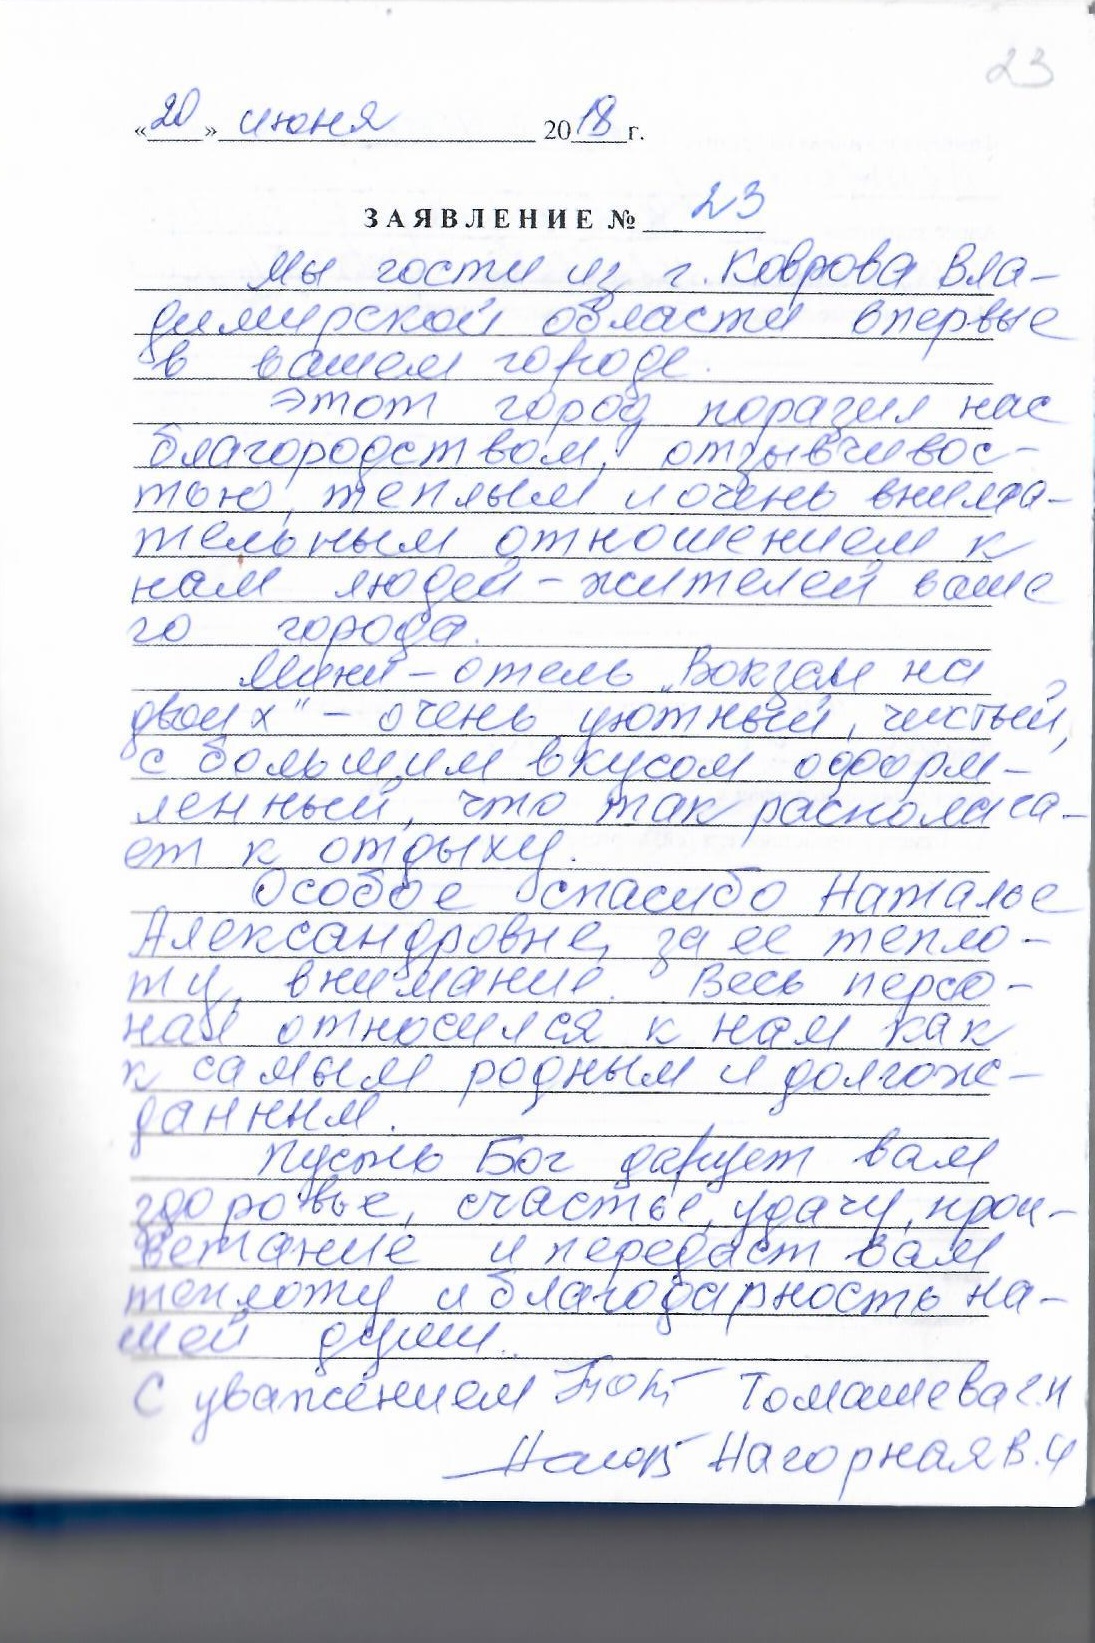 23
«20» июня 2018 г.
ЗАЯВЛЕНИЕ № 23
Мы гости из г. Коврова Вла-
димирской области впервые
в вашем городе.
Этот город поразил нас
благородством, отзывчивос-
тью, теплым и очень внима-
тельным отношением к
нам людей - жителей ваше
го города.
Мини - отель „Вокзал на
двоих" - очень уютный, чистый,
с большим вкусом оформ-
ленный, что так располага-
ет к отдыху.
Особое спасибо Наталье
Александровне, за ее тепло-
ту, внимание. Весь персо-
нал относился к нам как
к самым родным и долгож-
данным.
Пусть Бог дарует вам
здоровье, счастье, удачу, проц-
ветание и передаст вам
теплоту и благодарность на-
шей души.
С уважением Томашева
Нагорная В.